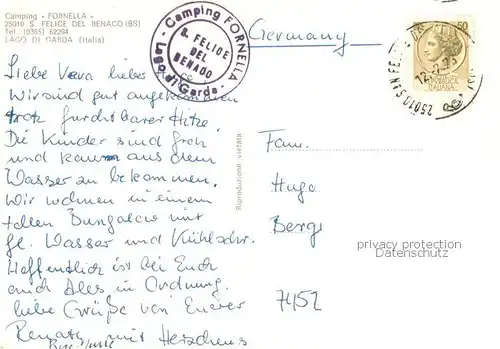 Camping « FORNELLA »
25010 S. FELICE DEL BENACO (BS)
Tel. (0365) 62294
LAGO DI GARDA (Italia)
Camping FORNELLA
S. FELICE
DEL
BENACO
Lago di Garda
Germany
50
ITALIANA
25010 SAN FE
Liebe Vera lieber
Wir sind gut angekommen
trotz furchtbarer Hitze.
Die Kinder sind froh
und kaum aus dem
Wasser zu bekommen.
Wir wohnen in einem
tollen Bungalow mit
fl. Wasser und Kühlschr.
Hoffentlich ist bei Euch
auch Alles in Ordnung.
liebe Grüße von Eurer
Renate mit
Riproduzione vietata
Fam.
Hugo
Berge
7452
privacy protection
Datenschutz